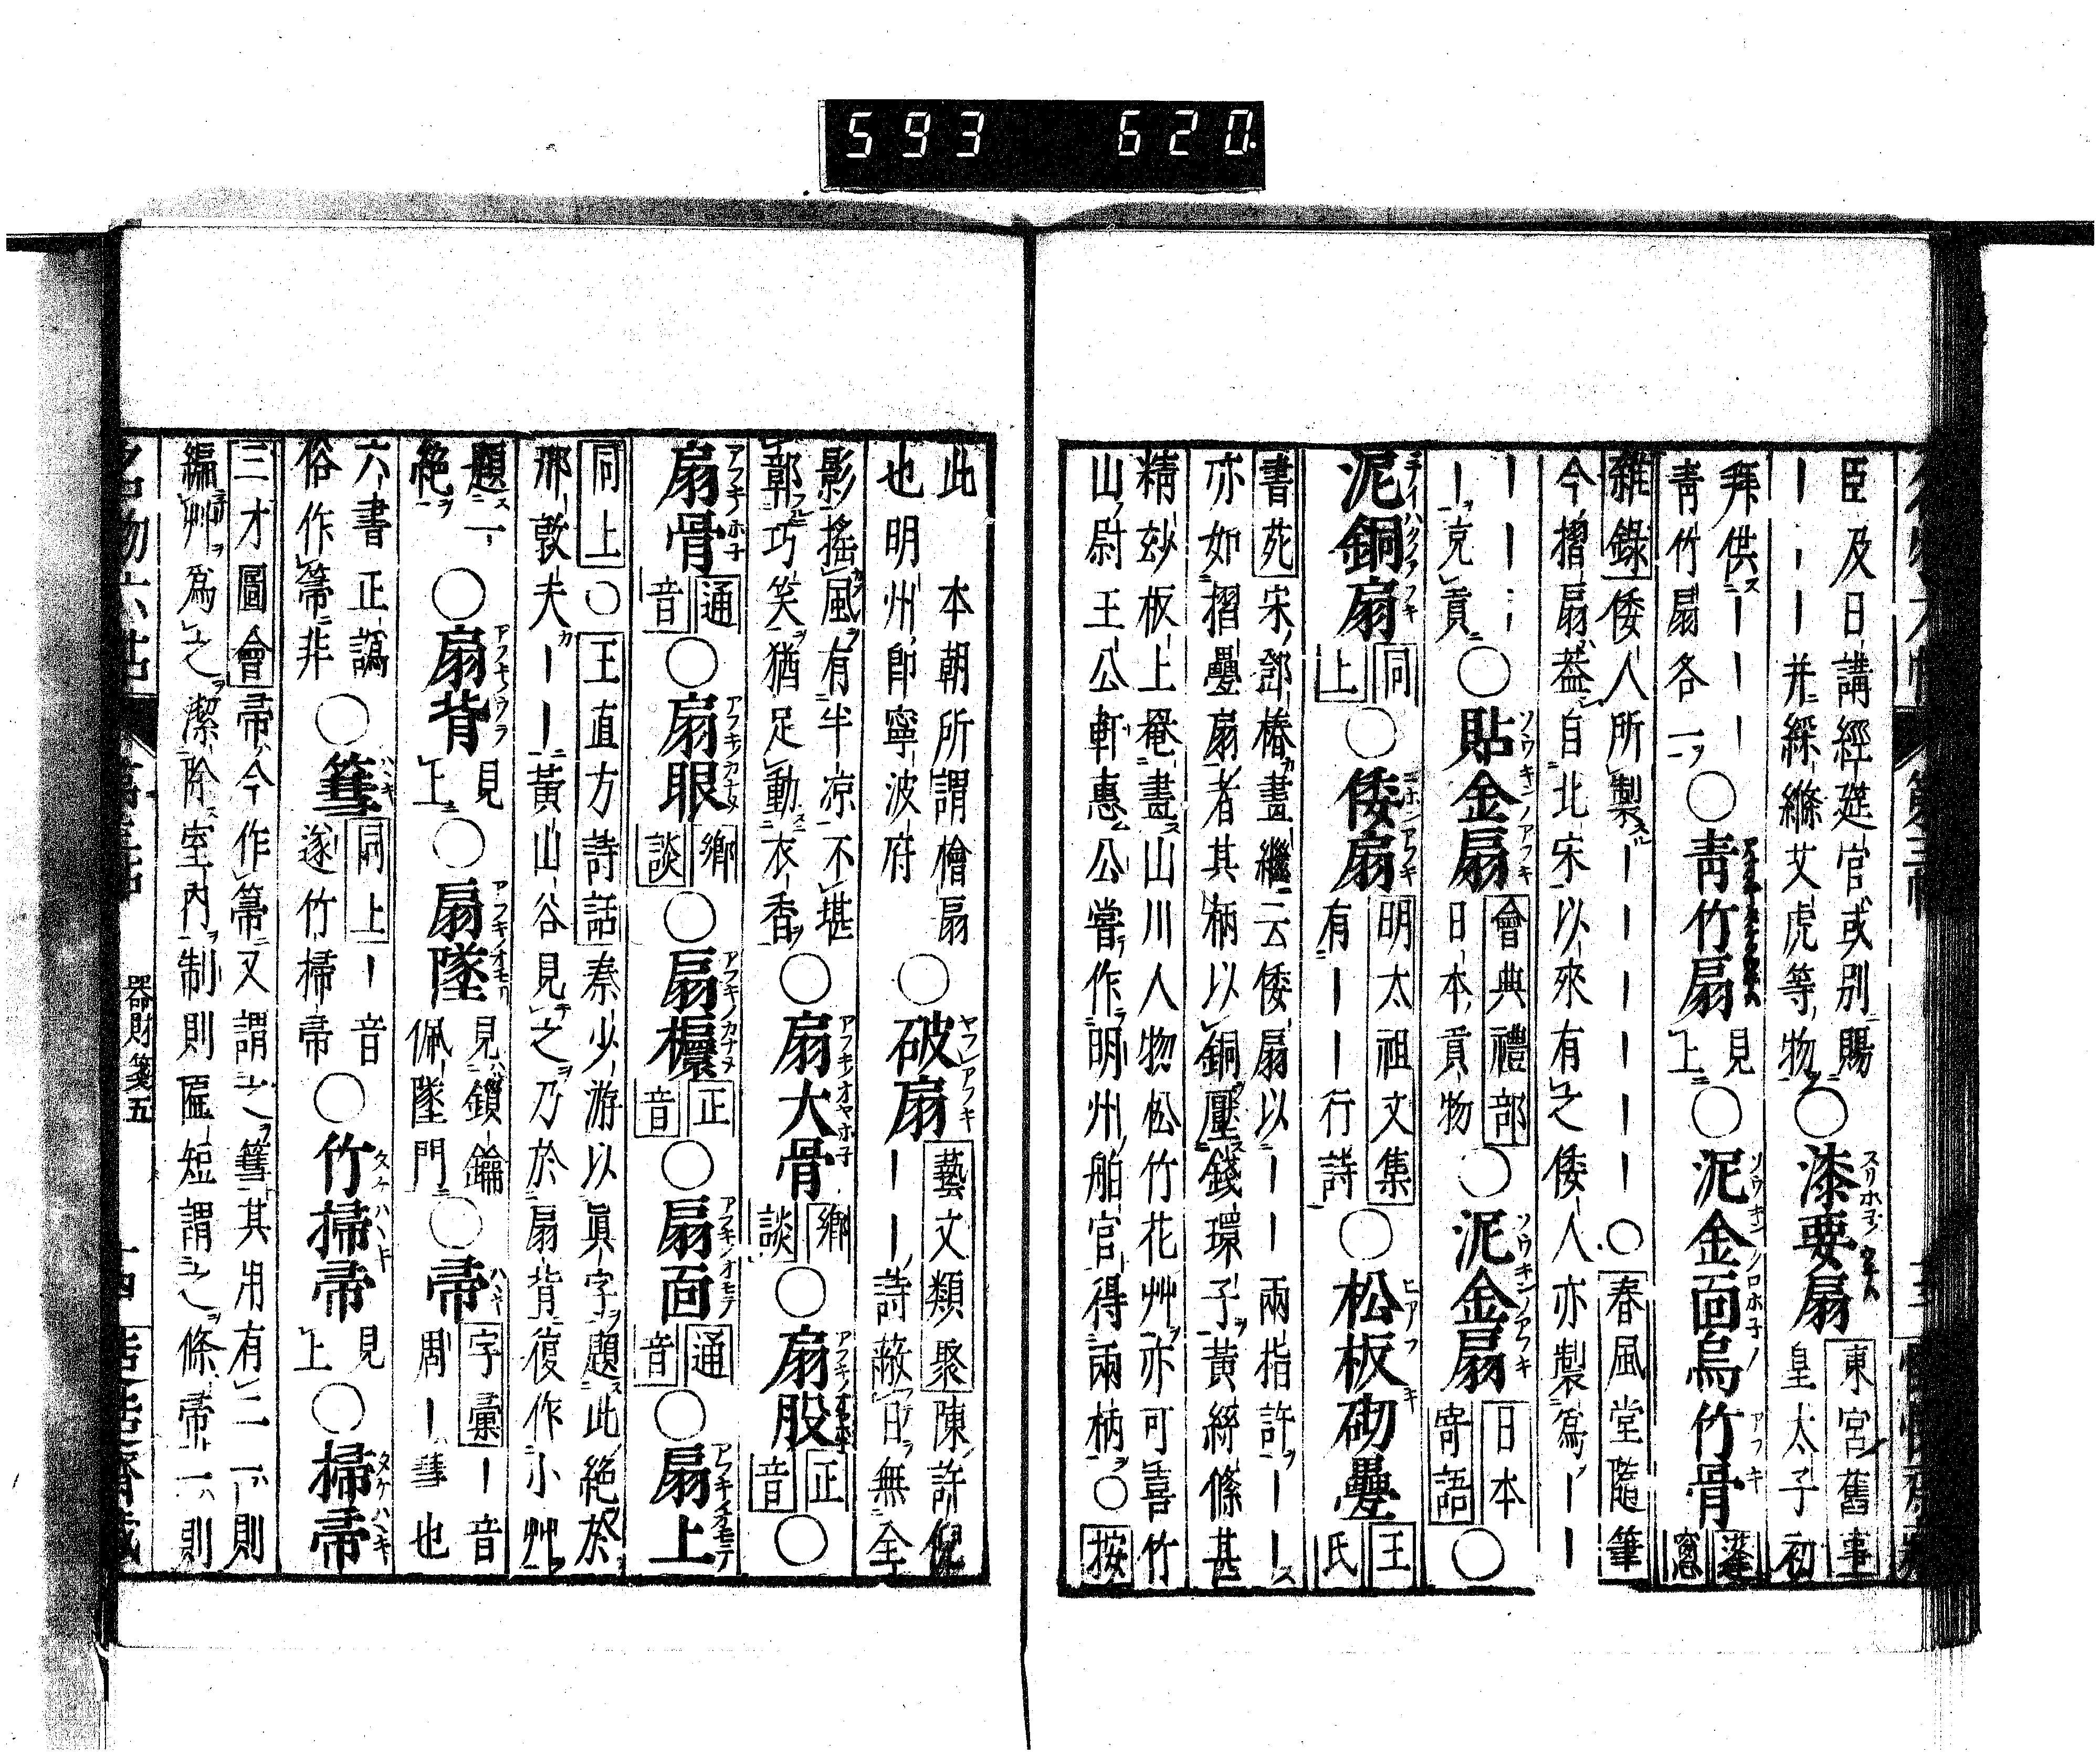 593 620
臣及日講經筵官或別賜
｜｜｜｜并綵縧艾虎等物○漆要扇東宮舊事皇太子初
拜供｜｜｜｜
青竹扇各一○青竹扇見上○泥金面烏竹骨蓬窓
雜錄倭人所製｜｜｜｜｜｜○春風堂隨筆
今摺扇葢自北宋以來有之倭人亦製爲｜｜
｜｜｜｜
｜克貢○貼金扇會典禮部日本貢物○泥金扇日本寄語○
泥銅扇同上○倭扇明太祖文集有｜｜｜行詩○松板砌疊王氏
書苑宋鄧椿畫繼云倭扇以｜｜兩指許｜｜
亦如摺疊扇者其柄以銅壓錢環子黃絲條甚
精玅板上罨畫山川人物松竹花艸亦可喜竹
山尉王公軒惠公嘗作明州舶官得兩柄○按
此　本朝所謂檜扇
也明州卽寧波府○破扇藝文類聚陳許倪｜｜詩蔽日無全
影搖風有半凉不堪
鄣巧笑猶足動衣香○扇大骨鄉談○扇股正音○
扇骨通音○扇眼鄉談○扇櫃正音○扇面通音○扇上
同上○王直方詩話秦少游以眞字題此絶於
邢敦夫｜｜黃山谷見之乃於扇背復作小艸
題一
絶○扇背見上○扇墜見鎖鑰佩墜門○帚字彙｜音周｜彗也
六書正譌
俗作箒非○篲同上｜音遂竹掃帚○竹掃帚見上○掃帚
三才圖會帚今作箒又謂之篲其用有二一則
編艸爲之潔除室內制則匾短謂之條帚一則
器財箋五